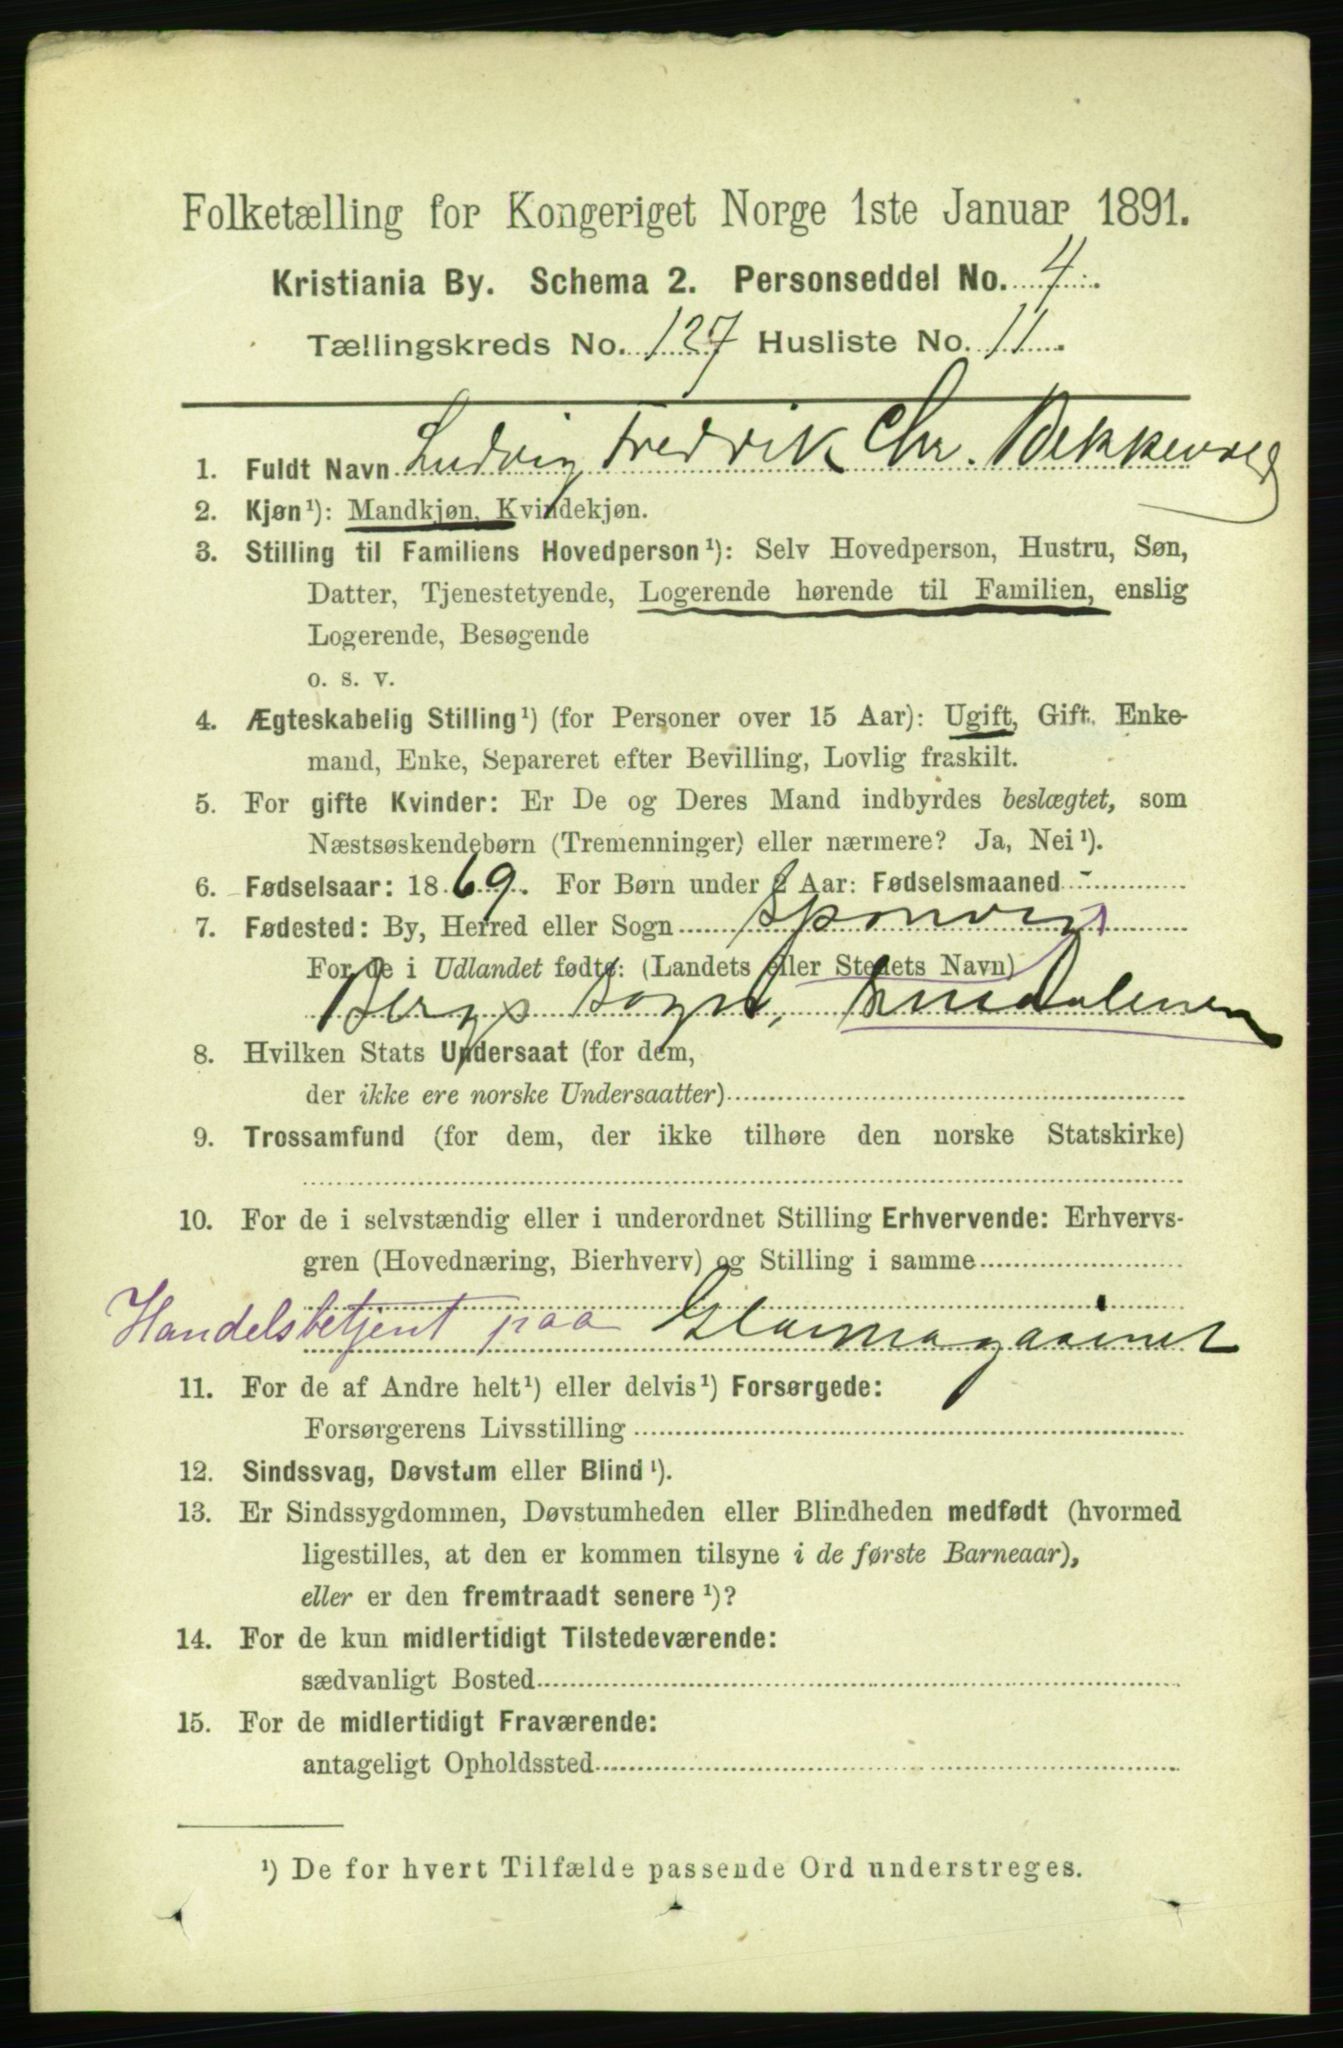 Folketælling for Kongeriget Norge 1ste Januar 1891.
Kristiania By. Schema 2. Personseddel No. 4.
Tællingskreds No. 127 Husliste No. 11.
1. Fuldt Navn Ludvig Fredrik Chr. Bekkevold
2. Kjøn¹): Mandkjøn, Kvindekjøn.
3. Stilling til Familiens Hovedperson¹): Selv Hovedperson, Hustru, Søn,
Datter, Tjenestetyende, Logerende hørende til Familien, enslig
Logerende, Besøgende
o. s. v.
4. Ægteskabelig Stilling¹) (for Personer over 15 Aar): Ugift, Gift, Enke-
mand, Enke, Separeret efter Bevilling, Lovlig fraskilt.
5. For gifte Kvinder: Er De og Deres Mand indbyrdes beslægtet, som
Næstsøskendebørn (Tremenninger) eller nærmere? Ja, Nei¹).
6. Fødselsaar: 1869. For Børn under 2 Aar: Fødselsmaaned -
7. Fødested: By, Herred eller Sogn Sponvigs
For de i Udlandet fødte: (Landets eller Stedets Navn)
Bergs Sogn, Smaalenene
8. Hvilken Stats Undersaat (for dem,
der ikke ere norske Undersaatter)
9. Trossamfund (for dem, der ikke tilhøre den norske Statskirke)
10. For de i selvstændig eller i underordnet Stilling Erhvervende: Erhvervs-
gren (Hovednæring, Bierhverv) og Stilling i samme
Handelsbetjent paa Glasmagasinet
11. For de af Andre helt¹) eller delvis¹) Forsørgede:
Forsørgerens Livsstilling
12. Sindssvag, Døvstum eller Blind¹).
13. Er Sindssygdommen, Døvstumheden eller Blindheden medfødt (hvormed
ligestilles, at den er kommen tilsyne i de første Barneaar),
eller er den fremtraadt senere¹)?
14. For de kun midlertidigt Tilstedeværende:
sædvanligt Bosted
15. For de midlertidigt Fraværende:
antageligt Opholdssted
¹) De for hvert Tilfælde passende Ord understreges.